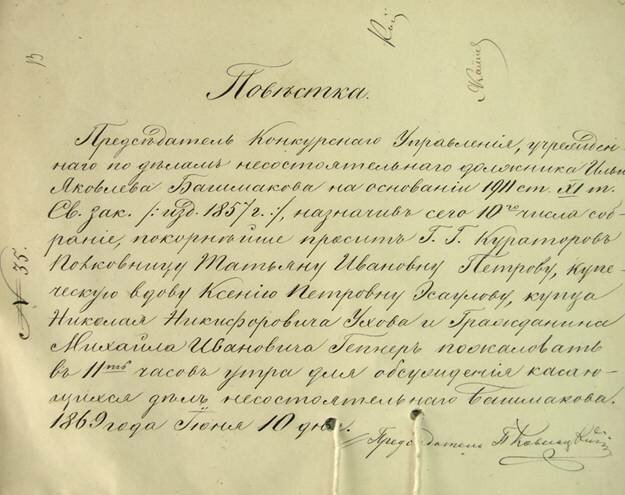 Повѣстка.
Предсѣдатель Конкурснаго Управленія, учрежден-
наго по дѣламъ несостоятельнаго должника Ильи
Яковлева Башмакова на основаніи 1911 ст. XI т.
Св. зак. /: изд. 1857 г. :/, назначивъ сего 10го числа соб-
раніе, покорнѣйше проситъ Г. Г. Кураторовъ
Полковницу Татьяну Ивановну Петрову, купе-
ческую вдову Ксенію Петровну Эсаулову, купца
Николая Никифоровича Ухова и Гражданина
Михайла Ивановича Геннеръ пожаловать
въ 11ть часовъ утра для обсужденія касаю-
щихся дѣлъ несостоятельнаго Башмакова.
1869 года Іюня 10 дня.
Предсѣдатель
№ 35.